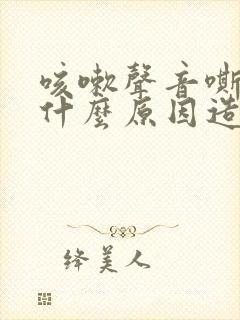 咳嗽聲音嘶
什麼原因造
绛美人